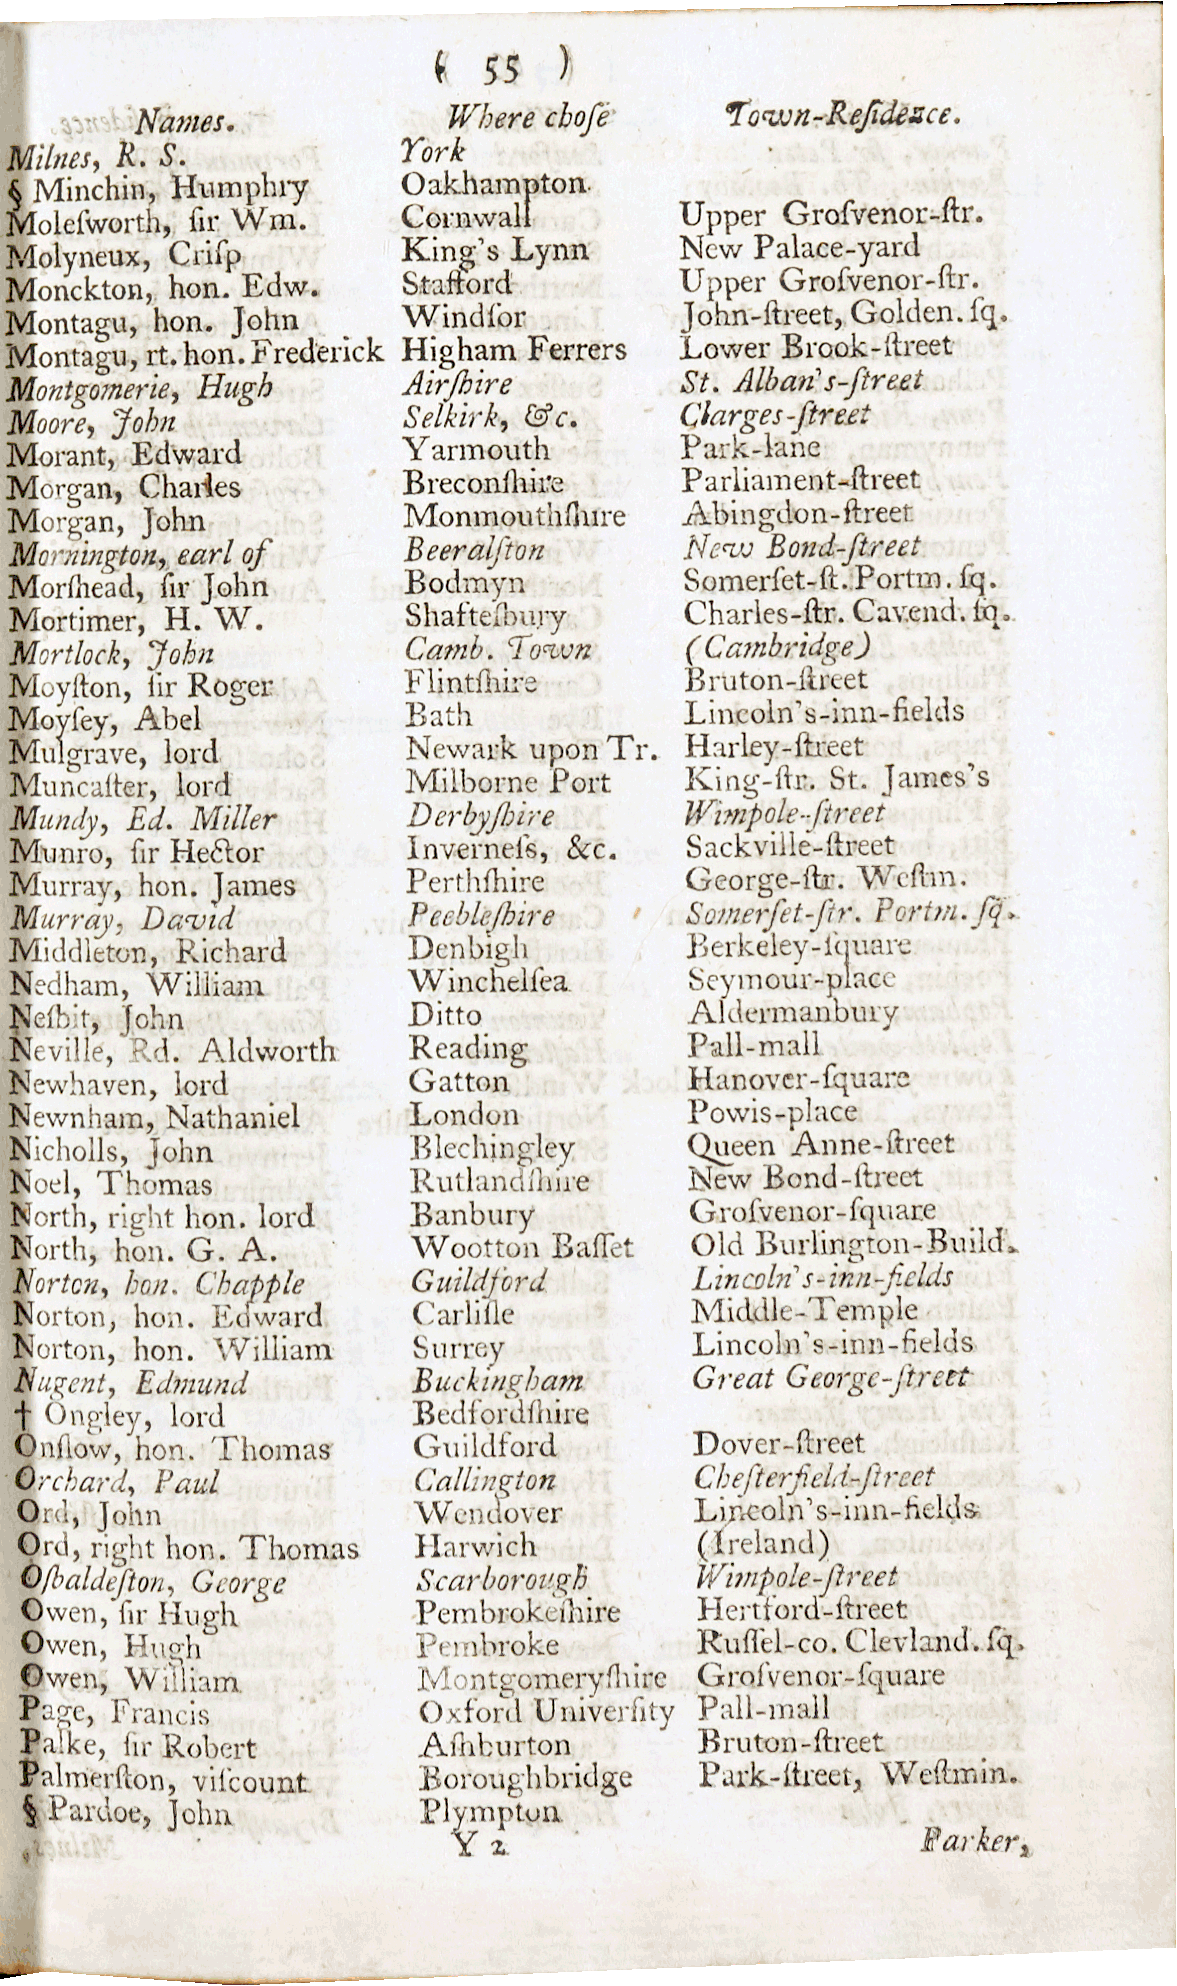 ( 55 )
Names. Where choſe Town-Reſidence.
Milnes, R. S. York
§ Minchin, Humphry Oakhampton.
Moleſworth, ſir Wm. Cornwall Upper Groſvenor-ſtr.
Molyneux, Criſp King's Lynn New Palace-yard
Monckton, hon. Edw. Stafford Upper Groſvenor-ſtr.
Montagu, hon. John Windſor John-ſtreet, Golden. ſq.
Montagu, rt. hon. Frederick Higham Ferrers Lower Brook-ſtreet
Montgomerie, Hugh Airſhire St. Alban's-ſtreet
Moore, John Selkirk, &c. Clarges-ſtreet
Morant, Edward Yarmouth Park-lane
Morgan, Charles Breconſhire Parliament-ſtreet
Morgan, John Monmouthſhire Abingdon-ſtreet
Mornington, earl of Beeralſton New Bond-ſtreet
Morſhead, ſir John Bodmyn Somerſet-ſt. Portm. ſq.
Mortimer, H. W. Shafteſbury Charles-ſtr. Cavend. ſq.
Mortlock, John Camb. Town (Cambridge)
Moyſton, ſir Roger Flintſhire Bruton-ſtreet
Moyſey, Abel Bath Lincoln's-inn-fields
Mulgrave, lord Newark upon Tr. Harley-ſtreet
Muncaſter, lord Milborne Port King-ſtr. St. James's
Mundy, Ed. Miller Derbyſhire Wimpole-ſtreet
Munro, ſir Hector Inverneſs, &c. Sackville-ſtreet
Murray, hon. James Perthſhire George-ſtr. Weſtm.
Murray, David Peebleſhire Somerſet-ſtr. Portm. ſq.
Middleton, Richard Denbigh Berkeley-ſquare
Nedham, William Winchelſea Seymour-place
Neſbit, John Ditto Aldermanbury
Neville, Rd. Aldworth Reading Pall-mall
Newhaven, lord Gatton Hanover-ſquare
Newnham, Nathaniel London Powis-place
Nicholls, John Blechingley Queen Anne-ſtreet
Noel, Thomas Rutlandſhire New Bond-ſtreet
North, right hon. lord Banbury Groſvenor-ſquare
North, hon. G. A. Wootton Baſſet Old Burlington-Build.
Norton, hon. Chapple Guildford Lincoln's-inn-fields
Norton, hon. Edward Carliſle Middle-Temple
Norton, hon. William Surrey Lincoln's-inn-fields
Nugent, Edmund Buckingham Great George-ſtreet
† Ongley, lord Bedfordſhire
Onſlow, hon. Thomas Guildford Dover-ſtreet
Orchard, Paul Callington Cheſterfield-ſtreet
Ord, John Wendover Lincoln's-inn-fields
Ord, right hon. Thomas Harwich (Ireland)
Oſbaldeſton, George Scarborough Wimpole-ſtreet
Owen, ſir Hugh Pembrokeſhire Hertford-ſtreet
Owen, Hugh Pembroke Ruſſel-co. Clevland. ſq.
Owen, William Montgomeryſhire Groſvenor-ſquare
Page, Francis Oxford Univerſity Pall-mall
Palke, ſir Robert Aſhburton Bruton-ſtreet
Palmerſton, viſcount Boroughbridge Park-ſtreet, Weſtmin.
§ Pardoe, John Plympton
Y 2 Parker,